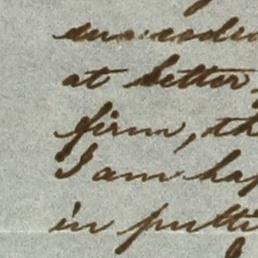 succeede
at better,
firm, th
I am hap
in putti